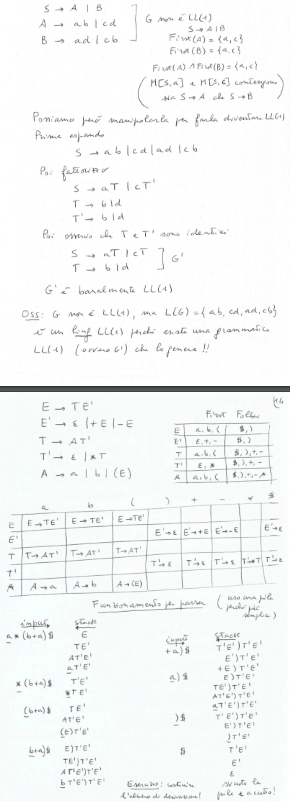 S → A | B
A → ab | cd
B → ad | cb
G non è LL(1)
S → A | B
First(A) = {a,c}
First(B) = {a,c}
First(A) ∩ First(B) = {a,c}
(M[S,a] e M[S,c] contengono
sia S → A che S → B)
Possiamo però manipolarla per farla diventare LL(1)
Prima espando
S → ab | cd | ad | cb
Poi fattorizzo
S → aT | cT'
T → b | d
T' → b | d
Poi osservo che T e T' sono identici
S → aT | cT
T → b | d
G'
G' è banalmente LL(1)
Oss: G non è LL(1), ma L(G) = {ab, cd, ad, cb}
è un ling LL(1) perché esiste una grammatica
LL(1) (ovvero G') che lo genera !!
E → TE'
E' → ε | +E | -E
T → AT'
T' → ε | *T
A → a | b | (E)
First Follow
E a, b, ( $, )
E' ε, +, - $, )
T a, b, ( $, ), +, -
T' ε, * $, ), +, -
A a, b, ( $, ), +, -, *
a b ( ) + - * $
E E→TE' E→TE' E→TE'
E' E'→ε E'→+E E'→-E E'→ε
T T→AT' T→AT' T→AT'
T' T'→ε T'→ε T'→ε T'→*T T'→ε
A A→a A→b A→(E)
Funzionamento del parser (uso una pila
perché più
semplice)
input stack
a*(b+a)$ E
TE'
AT'E'
aT'E'
*(b+a)$ T'E'
*TE'
(b+a)$ TE'
AT'E'
(E)T'E'
b+a)$ E)T'E'
TE')T'E'
AT'E')T'E'
bT'E')T'E'
input stack
+a)$ T'E')T'E'
E')T'E'
+E)T'E'
a)$ E)T'E'
TE')T'E'
AT'E')T'E'
aT'E')T'E'
)$ T'E')T'E'
E')T'E'
)T'E'
$ T'E'
E'
ε
Esercizio: costruire
l'albero di derivazione!
svuoto la
pila e accetto!